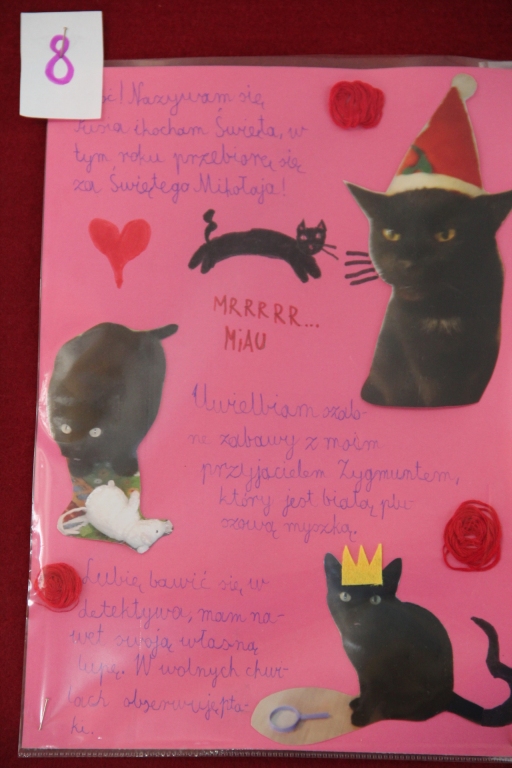 8
! Nazywam się
i kocham Święta, w
tym roku przebiorę się
za Świętego Mikołaja!
MRRRRR...
MiAU
Uwielbiam szalo-
ne zabawy z moim
przyjacielem Zygmuntem,
który jest białą plu-
szową myszką.
Lubię bawić się w
detektywa, mam na-
wet swoją własną
lupę. W wolnych chwi-
lach obserwuję pta-
ki.